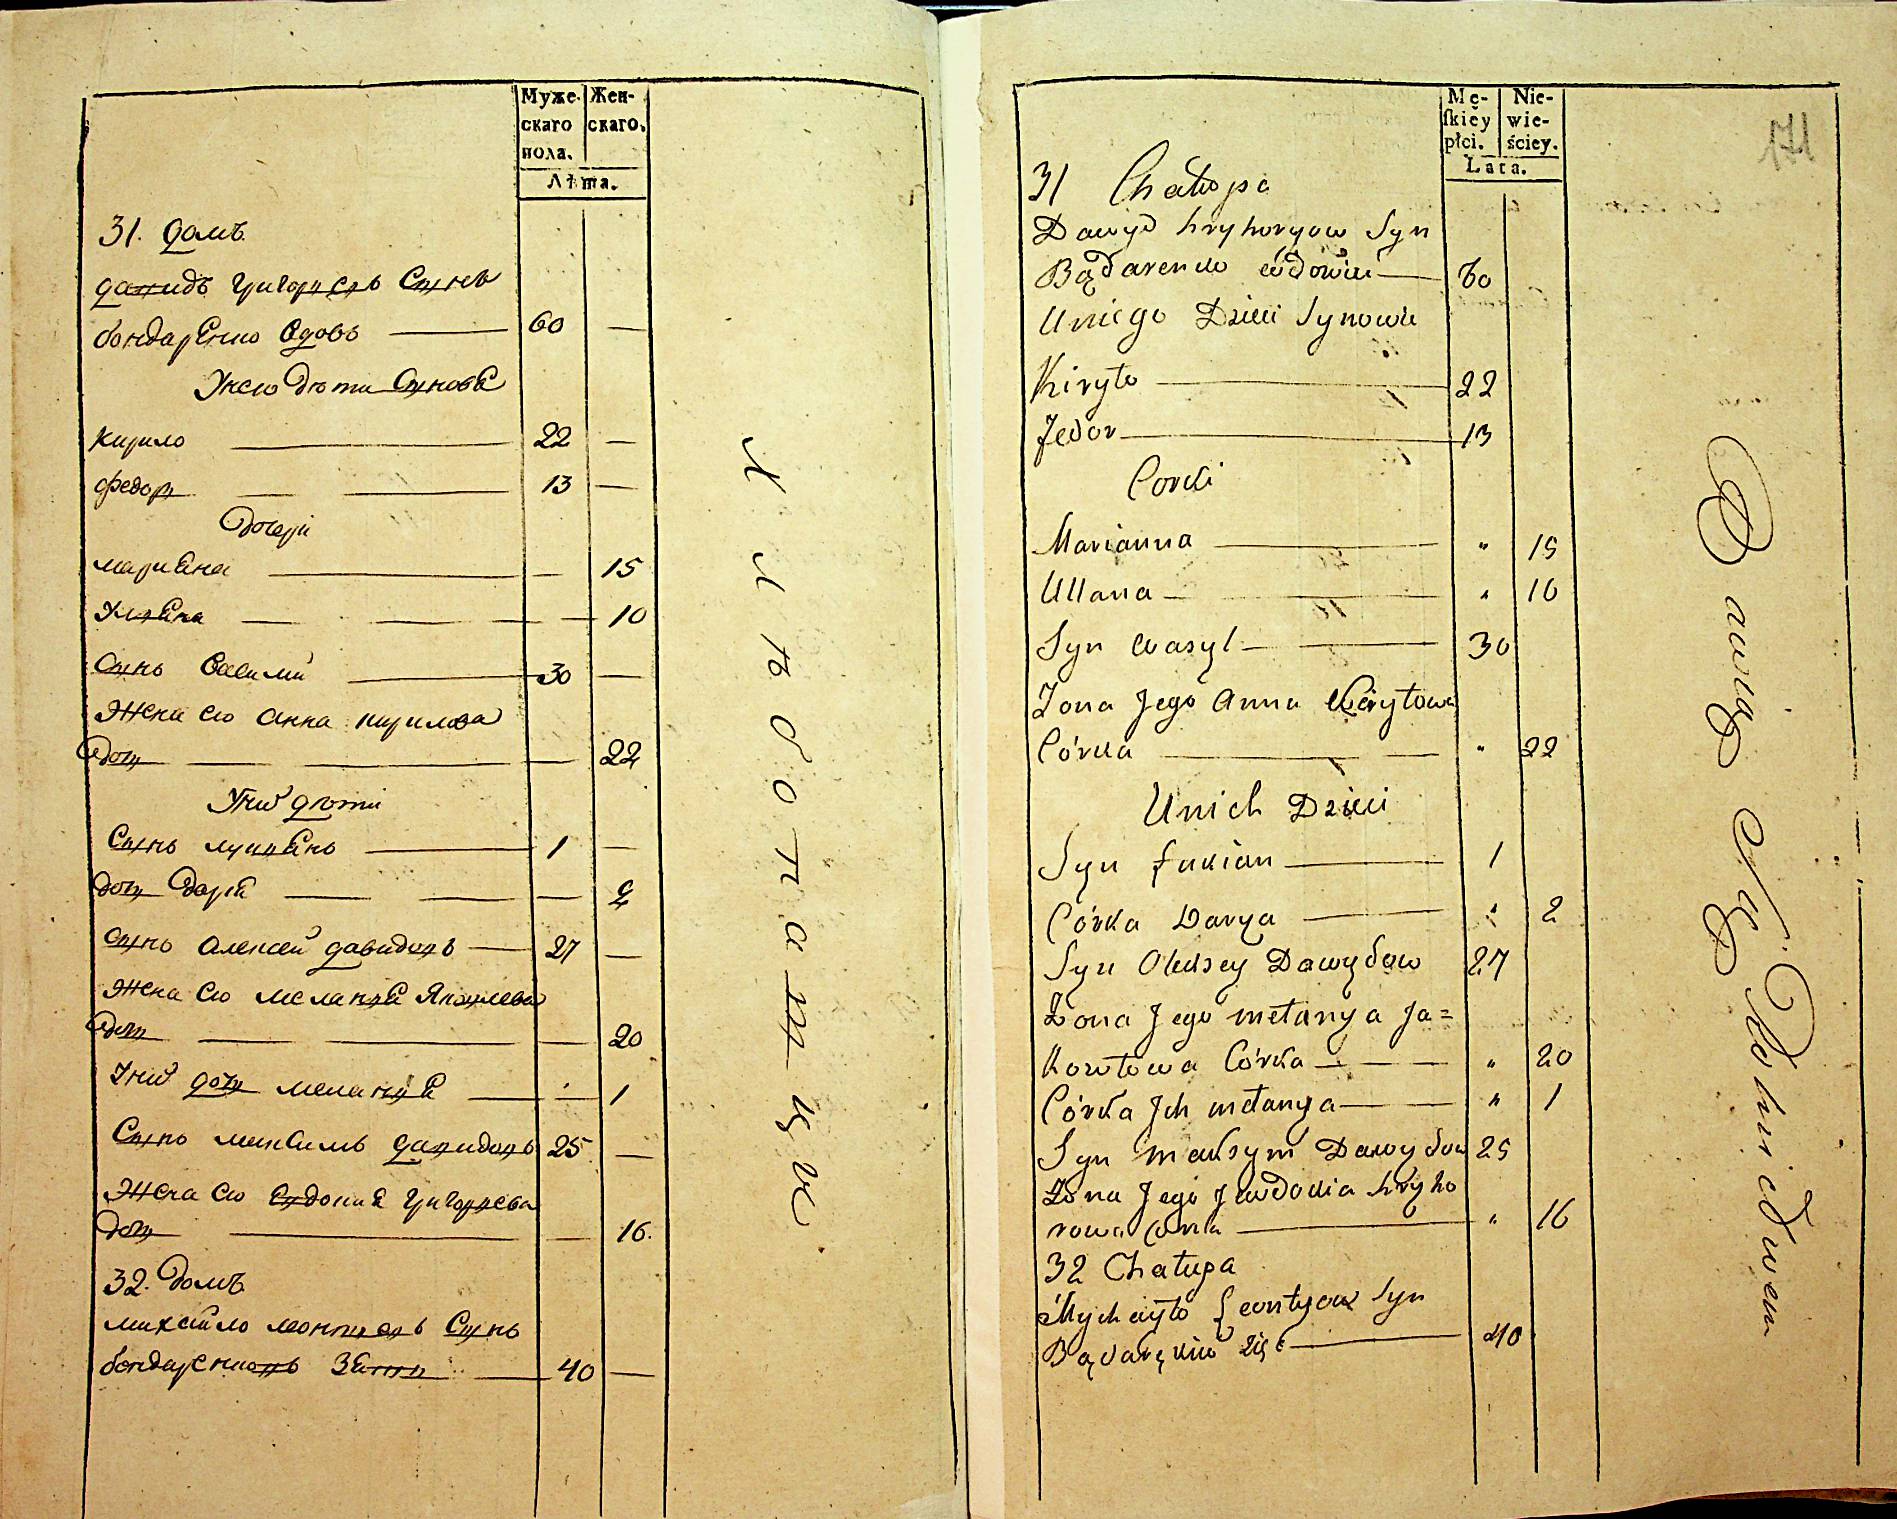 Муже-
скаго
пола.
Жен-
скаго.
Лѣта.
31. домъ
давидъ григорьевъ Сынъ
бондаренко вдовъ — 60 —
У него дѣти Сыновя
кирило — 22 —
федор — 13 —
дочери
мариана — 15
Уляна — 10
Сынъ василий — 30 —
Жена его анна кирилова
дочь — 22
У них дѣти
Сынъ лукианъ — 1 —
дочь дария — 2
Сынъ алексей давидовъ — 27 —
Жена его меланя Яковлева
дочь — 20
У них дочь меланя — 1
Сынъ максимъ давидовъ 25 —
Жена его Евдокия григорьева
дочь — 16.
32. домъ
михайло леонтьевъ Сынъ
бондаренковъ Зять — 40 —
Mę-
ſkiéy
płci.
Nie-
wie-
ściey.
Lata.
171
31 Chałupa
Dawyd hryhoryow Syn
Bądarenko wdowiec — 60
U niego Dzieci Synowie
Kiryło — 22
Fedor — 13
Corki
Marianna — " 15
Ullana — " 10
Syn wasyl — 30
Zona Jego Anna Kiryłowa
Córka — " 22
U nich Dzieci
Syn Łukian — 1
Córka Darya — " 2
Syn Oleksey Dawydow 27
Zona Jego mełanya Ja=
kowłowa Córka — " 20
Córka Jch mełanya — " 1
Syn maksym Dawydow 25
Zona Jego Jewdokia hryho
rowa Corka — " 16
32 Chałupa
Mychayło Leontyow Syn
Bądaręków Zięć — 40